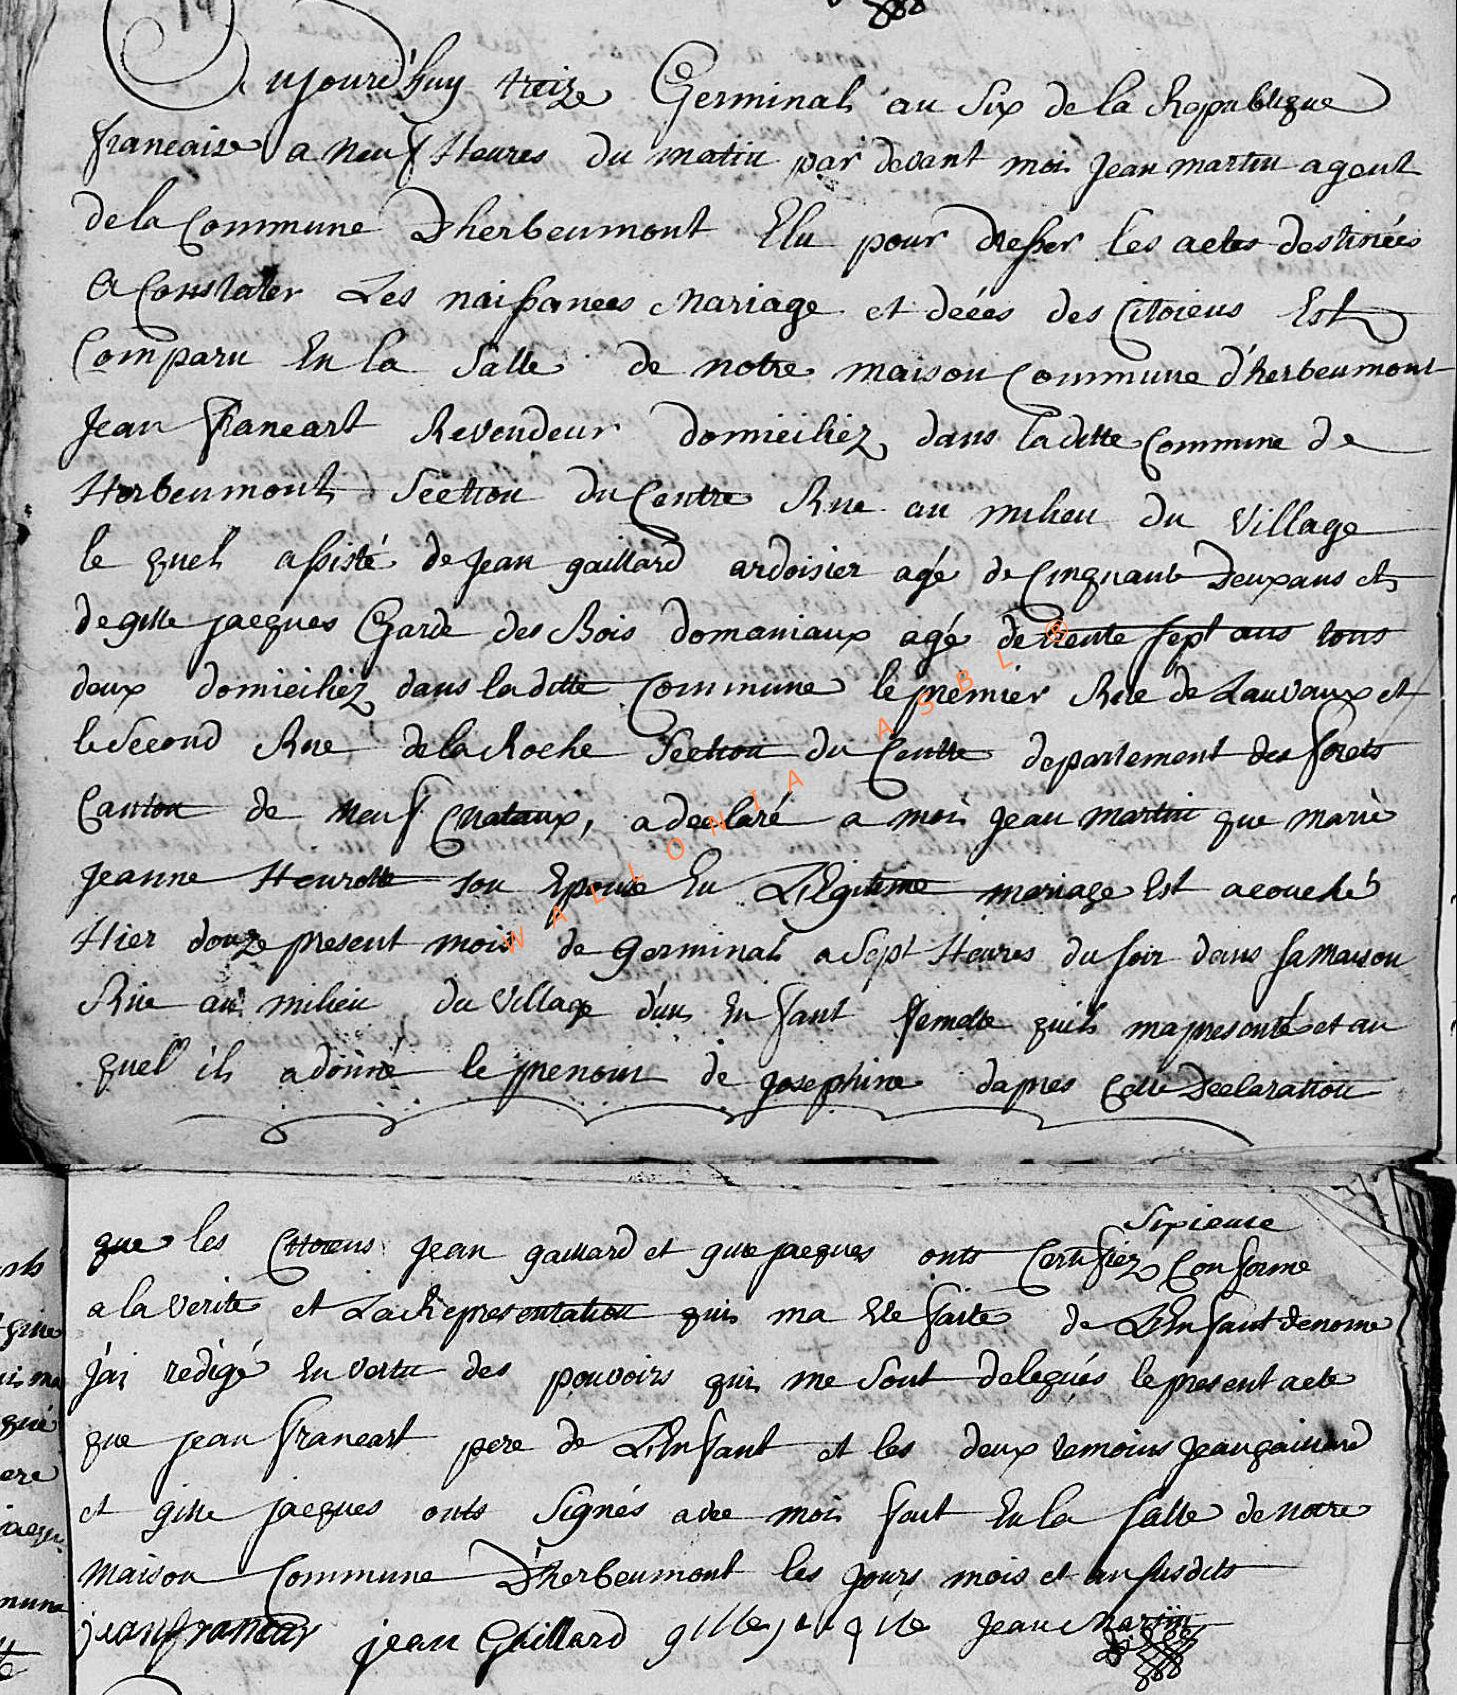 Aujourd'huy treize Germinal an Six de la Republique
francaise a neuf Heures du matin par devant moi Jean martin agent
de la Commune D'herbeumont Elu pour dresser les actes destinées
a Constater Les naissances Mariage et décés des Citoiens Est
Comparu En la Salle de notre maison Commune d'herbeumont
Jean francart Revendeur domiciliez dans la ditte Commune de
Herbeumont Section du Centre Rue au milieu du Village
le quel assisté de Jean gaillard ardoisier agé de Cinquante Deux ans et
de gille jacques Garde des Bois domaniaux agé de trente sept ans tous
deux domiciliez dans la ditte Commune le premier Rue de Lauvaux et
le Second Rue de la Roche Section du Centre departement des forets
Canton de neuf Chataux, a declaré a moi Jean martin que marie
Jeanne Henrotte son Epouse En LEgiteme mariage Est acouché
Hier douze present mois de germinal a Sept Heures du soir dans sa maison
Rue au milieu du Village d'un Enfant femelle quil ma presenté et au
quel il a donné le prenom de josephine dapres Cette Declaration
WALLONIA ASBL ®
Sixieme
que les Citoiens Jean gaillard et gille jacques onts Certifiez Conforme
a la verite et La Representation qui ma Ete faite de L'Enfant denome
J'ai redigé En vertu des pouvoirs qui me sont delegués le present acte
que jean francart pere de L'Enfant et les deux temoins Jean gaillard
et gille jacques onts Signés avec moi fait En la salle de notre
maison Commune D'herbeumont les jours mois et an susdits
jean francar jean Gaillard gille Jean Martin